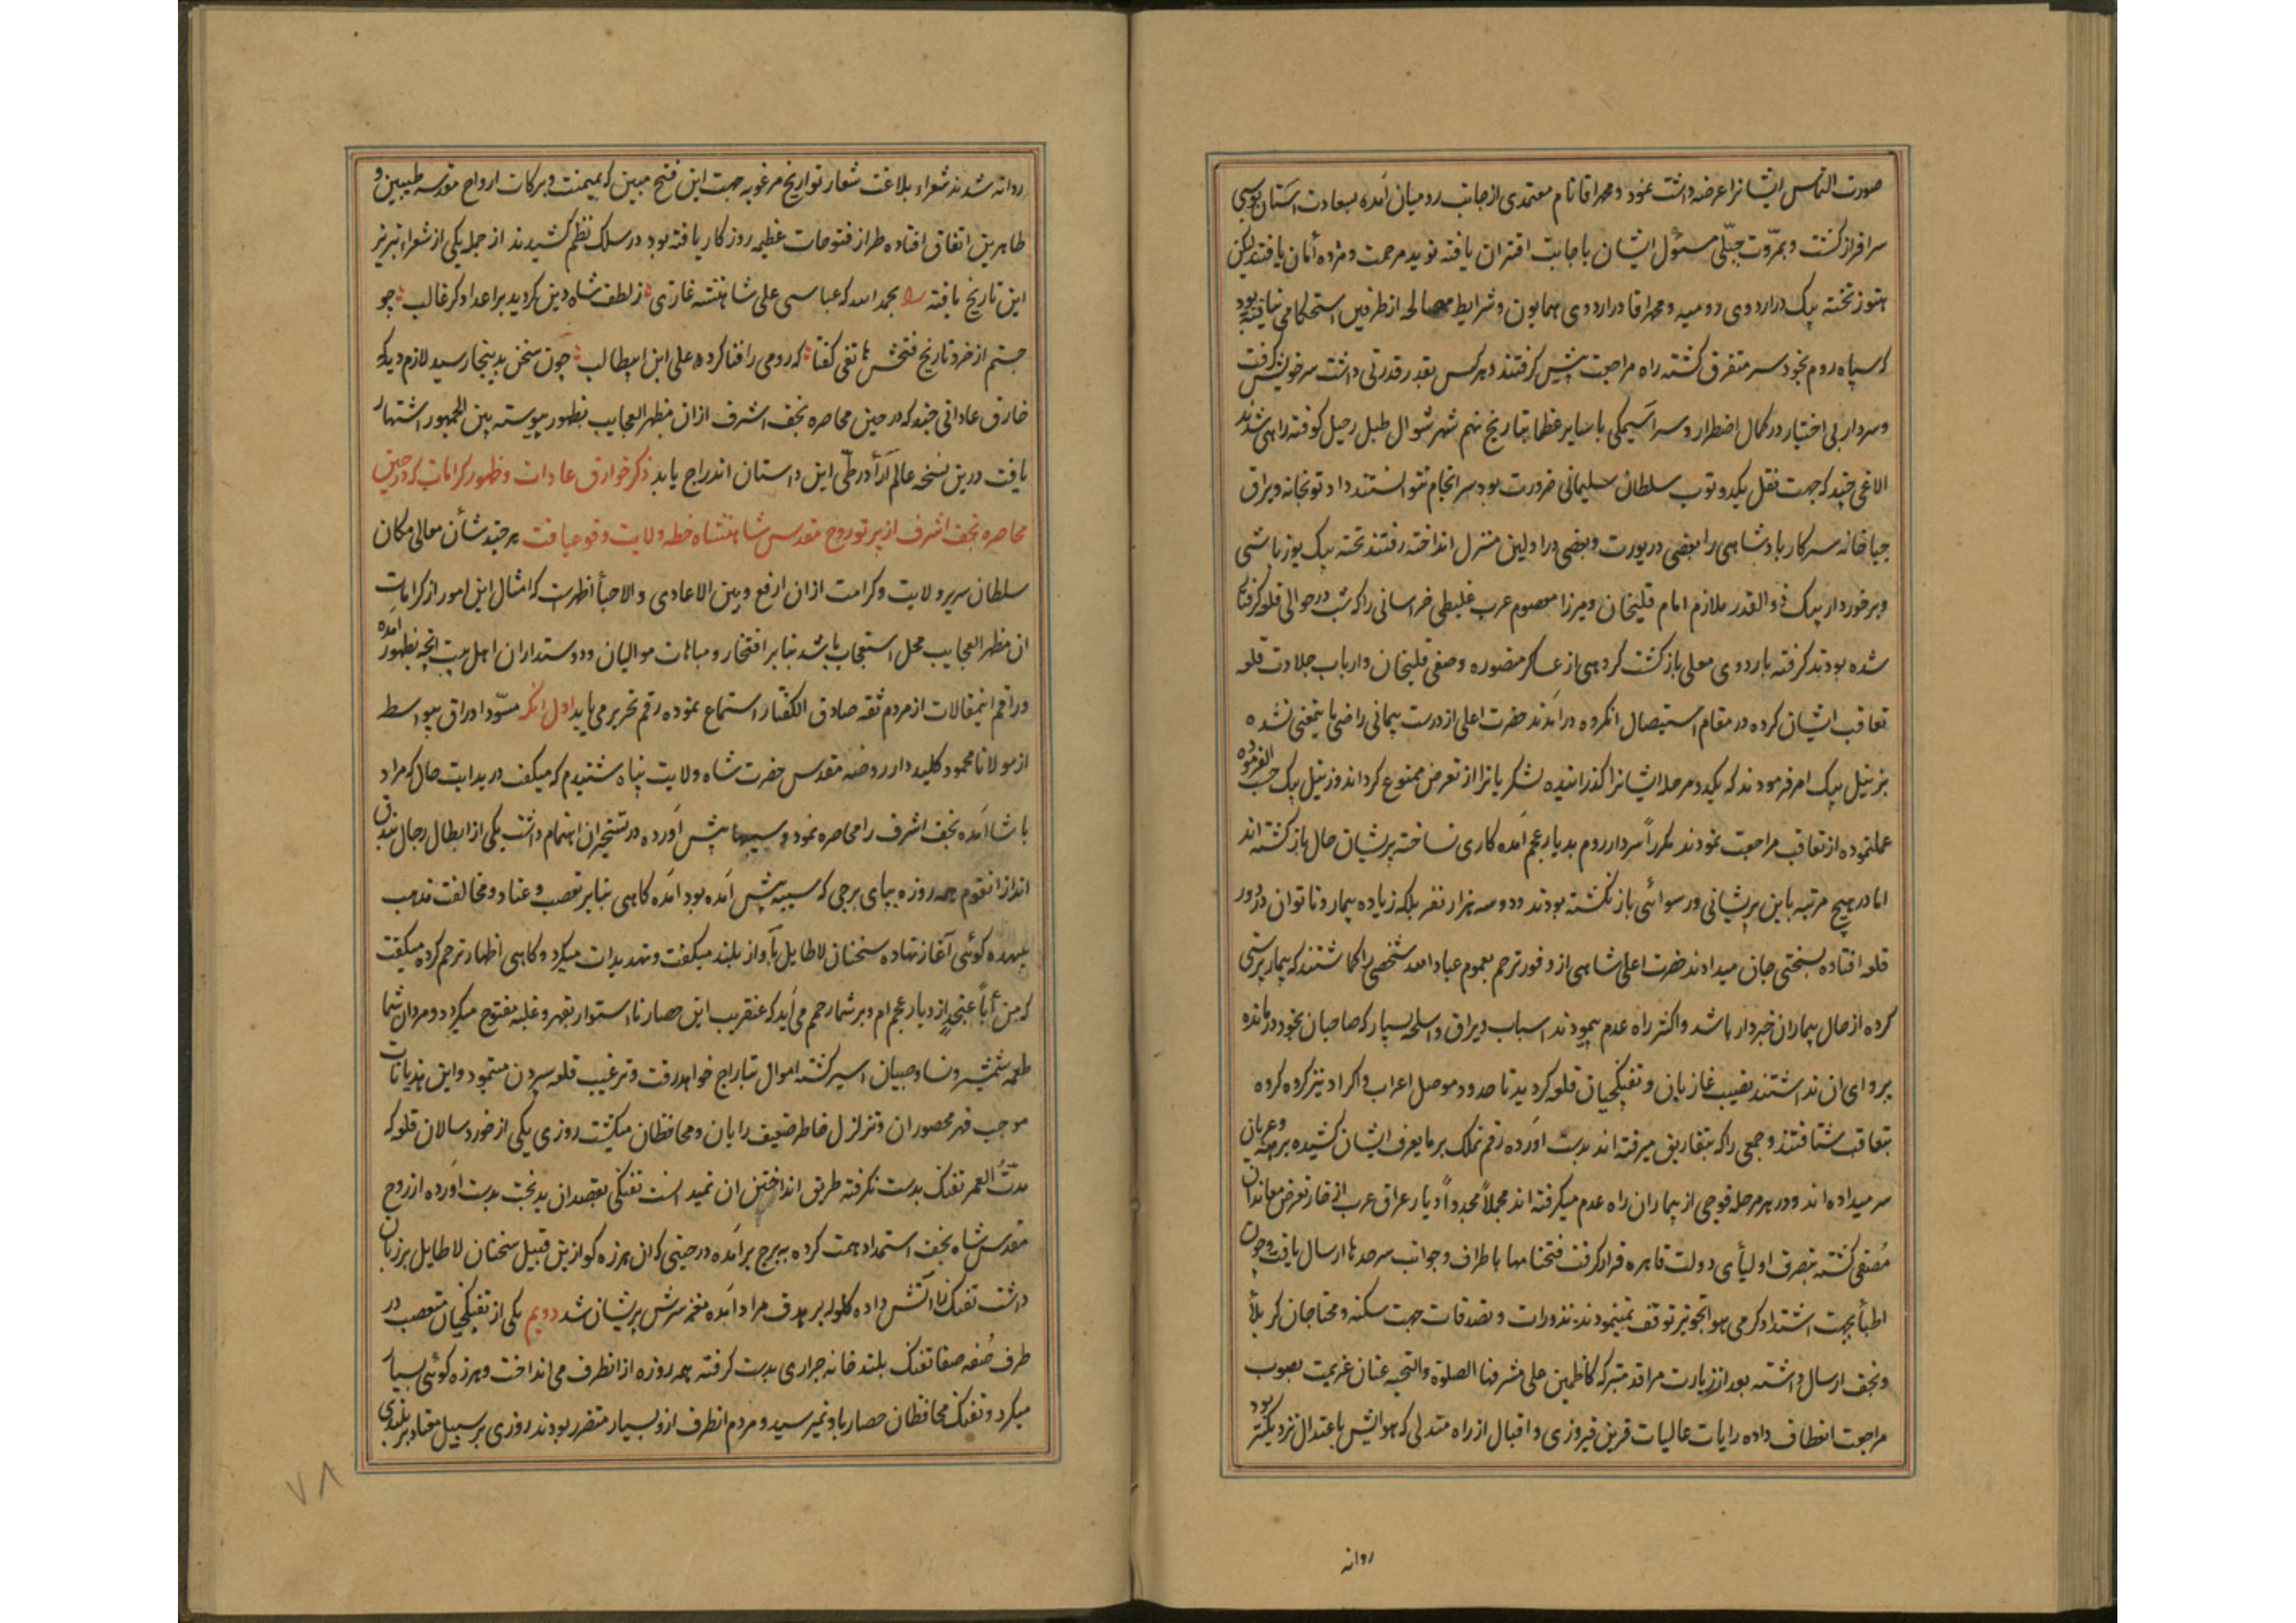 صورت التماس ایشانرا عرضه داشت نمود و محمد اقا نام معتمدی از جانب رومیان آمده بسعادت آستان بوسی
سرافراز گشت و بمروّت جبّلی مسئول ایشان باجابت اقتران یافته نوید مرحمت و مژده أمان یافتند لیکن
هنوز تخته بیک در اردوی رومیه و محمد اقا در اردوی همایون و شرایط مصالحه از طرفین استحکامی نیافته بود
که سپاه روم بخود سر متفرق گشته راه مراجعت پیش گرفتند و هر کس بقدر قدرتی داشت سر خویش گرفت
و سردار بی اختیار در کمال اضطرار و سراسیمگی با سایر عظما بتاریخ نهم شهر شوال طبل رحیل کوفته راهی شدند
الاغی چند که جهت نقل یکدو توپ سلطان سلیمانی ضرورت بود سرانجام نتوانستند داد توپخانه ویراق
جباخانه سرکار پادشاهی را بعضی در یورت و بعضی در اولین منزل انداخته رفتند تخته بیک یوزباشی
و برخوردار بیک ذوالقدر ملازم امام قلیخان و میرزا معصوم عرب غلیطی خراسانی را که شب در حوالی قلعه گرفتار
شده بودند گرفته باردوی معلی بازگشت گروهی از عساکر منصوره و صفی قلیخان و ارباب جلادت قلعه
تعاقب ایشان کرده در مقام استیصال انگروه درآمدند حضرت اعلی از درست پیمانی راضی باینمعنی نشده
بزینل بیک امر فرمودند که یکدو مرحله ایشانرا گذرانیده لشکریانرا از تعرض ممنوع گرداند و زینل بیک حسب الفرموده
عملنموده از تعاقب مراجعت نمودند مکرراً سردار روم بدیار عجم آمده کاری نساخته پریشان حال بازگشته اند
اما در هیچ مرتبه باین پریشانی و رسوائی باز نگشته بودند دو و سه هزار نفر بلکه زیاده بیمار و ناتوان در دور
قلعه افتاده بسختی جان میدادند حضرت اعلی شاهی از وفور ترحم بعموم عباد الله شخصی را گماشتند که بیمار پرستی
کرده از حال بیماران خبردار باشد و اکثر راه عدم پیمودند اسباب ویراق و اسلحه بسیار که صاحبان بخود درمانده
پروای ان نداشتند نصیب غازیان و تفنگچیان قلعه گردید تا حدود موصل اعراب و اکراد نیز گروه گروه
بتعاقب شتافتند و جمعی را که بتفاریق میرفته اند بدست آورده رقم تملک بر ما یعرف ایشان کشیده برهنه و عریان
سر میداده اند و در هر مرحله فوجی از بیماران راه عدم میگرفته اند مجملاً مجدداً دیار عراق عرب از خار تعرض معاندان
مُصّفی گشته بتصرف اولیأی دولت قاهره قرار گرفت فتحنامها باطراف و جوانب سرحدها ارسال یافت و چون
اطبأ بجهت اشتداد گرمی هوا تجویز توقف نمینمودند نذورات و تصدقات جهت سکنه و محتاجان کربلأ
و نجف ارسال داشته بعد از زیارت مراقد متبرکه کاظمین علی مشرفها الصلوة والتحیه عنان عزیمت بصوب
مراجعت انعطاف داده رایات عالیات قرین فیروزی و اقبال از راه مندلی که هوایش باعتدال نزدیکتر بود
روانه
روانه شدند شعراء بلاغت شعار تواریخ مرغوبه جهت این فتح مبین که بمیمنت و برکات ارواح مقدسه طیبین و
طاهرین اتفاق افتاده طراز فتوحات عظیمه روزکار یافته بود در سلک نظم کشیدند از جمله یکی از شعراء تبریز
این تاریخ یافته بحمد الله که عباس علی شاهنشه غازی ز لطف شاه دین گردید بر اعدا دگر غالب چو
جستم از خرد تاریخ فتحش هاتفی گفتا که رومی را فنا کرده علی ابن ابیطالب چون سخن بدینجا رسید لازم دید که
خارق عاداتی چند که در حین محاصره نجف اشرف ازان مظهر العجایب بظهور پیوسته بین الجمهور اشتهار
یافت درین نسخه عالم آرأ در طّی این داستان اندراج یابد ذکر خوارق عادات و ظهور کرامات که در حین
محاصره نجف اشرف از پرتو روح مقدس شاهنشاه خطه ولایت وقوع یافت هر چند شأن معالی مکان
سلطان سریر ولایت و کرامت ازان ارفع و بین الاعادی و الاحبأ اظهرست که امثال این امور از کرامات
ان مظهر العجایب محل استعجاب باشد بنابر افتخار و مباهات موالیان و دوستداران اهل بیت آنچه بظهور آمده
و راقم اینمقالات از مردم ثقه صادق الگفتار استماع نموده رقم تحریر می یابد اول انکه مسوّد اوراق بیواسطه
از مولانا محمود کلیددار روضه مقدس حضرت شاه ولایت پناه شنیدم که میگفت در بدایت حال که مراد
پاشا آمده نجف اشرف را محاصره نمود و سیبها پیش آورده در تسخیر ان اهتمام داشت یکی از ابطال رجال بندق
انداز انقوم همه روزه بپای برجی که سیبه پیش آمده بود آمده گاهی بنابر تعصب و عناد و مخالفت مذهب
بیهده گوئی آغاز نهاده سخنان لاطایل بآواز بلند میگفت و تهدیدات میکرد و گاهی اظهار ترحم کرده میگفت
که من أباً عنجدٍ از دیار عجم ام و بر شما رحم می آید که عنقریب این حصار نا استوار بقهر و غلبه مفتوح میگردد و مردان شما
طعمه شمشیر و نسا و صبیان اسیر گشته اموال بتاراج خواهد رفت و ترغیب قلعه سپردن مینمود و این هذیانات
موجب قهر محصوران و تزلزل خاطر ضعیف رایان و محافظان میگشت روزی یکی از خورد سالان قلعه که
مدّت العمر تفنک بدست نگرفته طریق انداختن ان نمیدانست تفنگی بقصد ان بدبخت بدست آورده از روح
مقدس شاه نجف استمداد همت کرده به برج برآمده در حینی که ان هرزه گو ازین قبیل سخنان لاطایل بر زبان
داشت تفنک را آتش داده گلوله بر هدف مراد آمده مغز سرش پریشان شد دویم یکی از تفنگچیان متعصب در
طرف صُفه صفا تفنک بلند خانه جراری بدست گرفته همه روزه از انطرف می انداخت و هرزه گوئی بسیار
میکرد و تفنک محافظان حصار باو نمیرسید و مردم انطرف ازو بسیار متضرر بودند روزی بر سبیل معتاد بر بلندی
۷۸